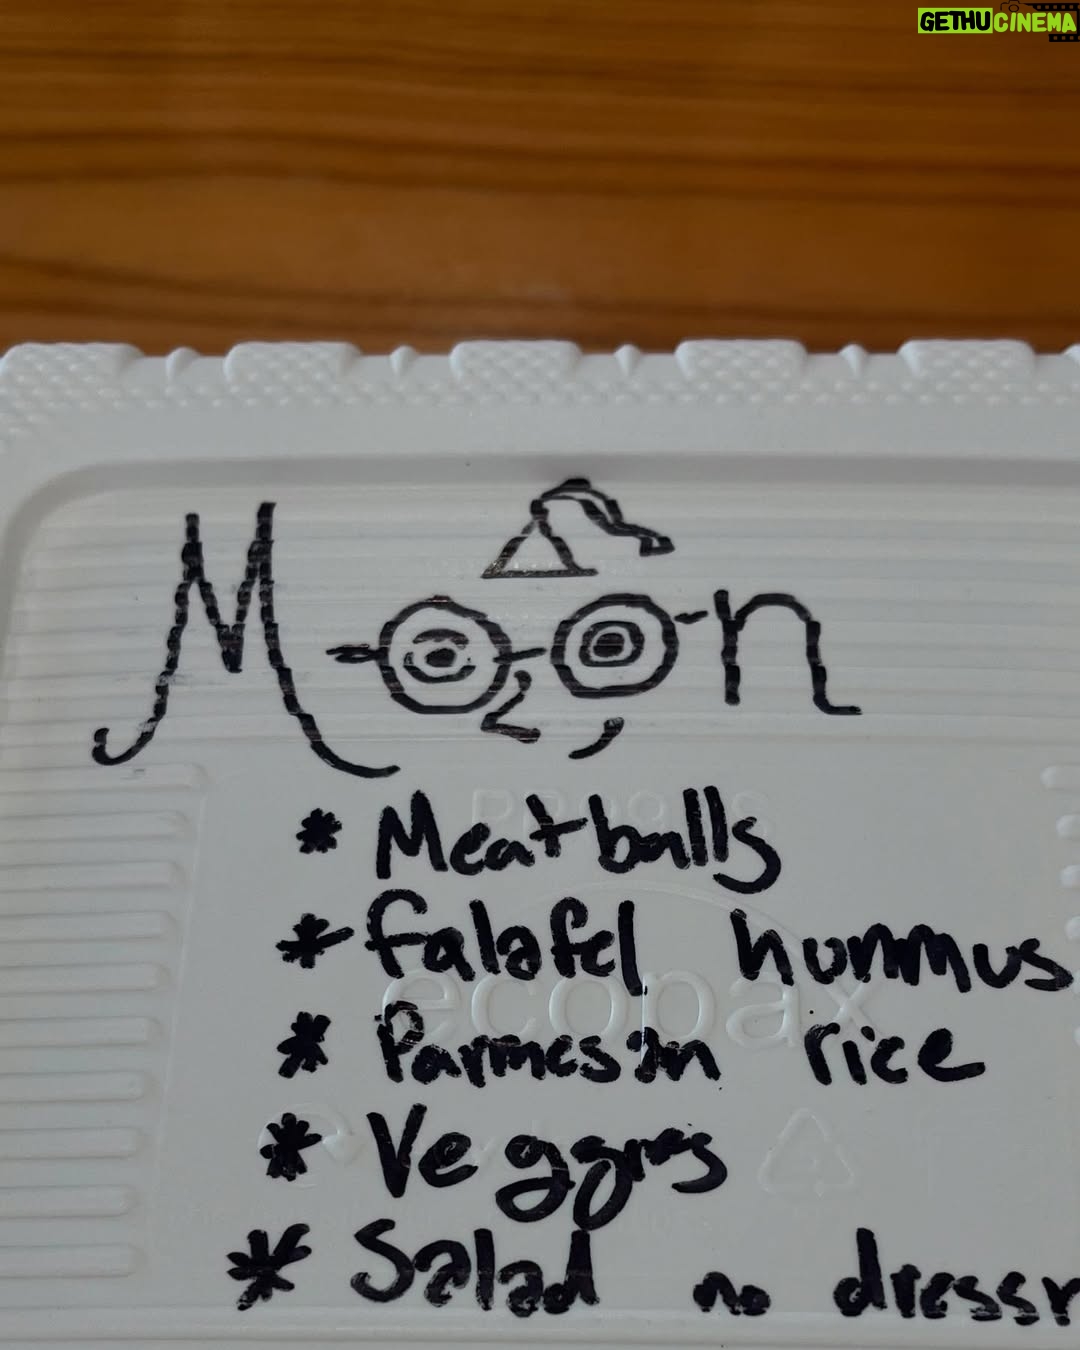 GETHUCINEMA
Moon
* Meatballs
* falafel hummus
* Parmesan rice
ecopax
* Veggies
* Salad no dressi